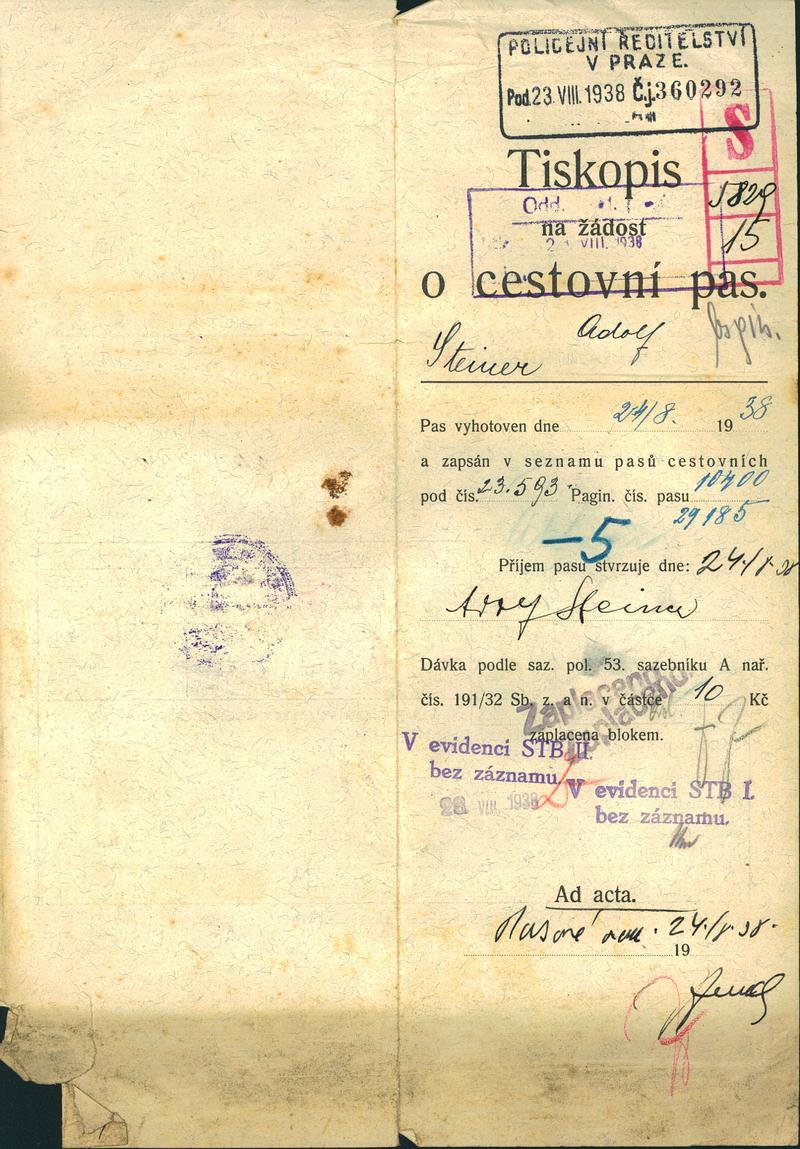 POLICEJNÍ ŘEDITELSTVÍ
V PRAZE.
Pod. 23. VIII. 1938 Č.j. 360292
S
1829
15
Tiskopis
Odd.
na žádost
VIII. 1938
o cestovní pas.
Adolf
Steiner
Pas vyhotoven dne 24/8. 1938
a zapsán v seznamu pasů cestovních
pod čís. 23.593 Pagin. čís. pasu 10400
29185
–5
Příjem pasu stvrzuje dne: 24./8 38
Adolf Steiner
Dávka podle saz. pol. 53. sazebníku A nař.
čís. 191/32 Sb. z. a n. v částce 10 Kč
Zaplaceno
Zaplaceno
zaplacena blokem.
V evidenci STB II.
bez záznamu
23 VIII. 1938
V evidenci STB I.
bez záznamu.
Ad acta.
24./8. 38.
19